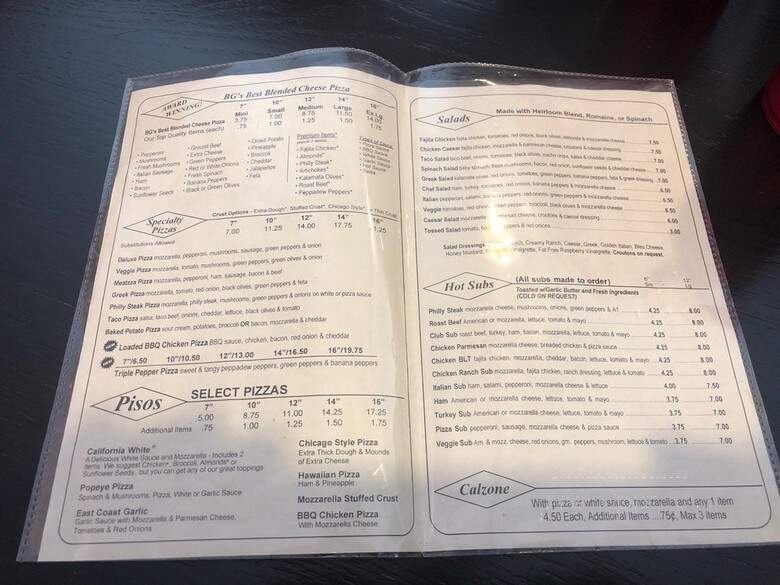 AWARD WINNING!
BG's Best Blended Cheese Pizza
7" 10" 12" 14" 16"
Mini Small Medium Large Ex Lg
BG's Best Blended Cheese Pizza 3.75 7.00 8.75 11.50 14.00
Our Top Quality Items (each) .75 1.00 1.25 1.50 1.75
• Pepperoni
• Mushrooms
• Fresh Mushrooms
• Italian Sausage
• Ham
• Bacon
• Sunflower Seeds
• Ground Beef
• Extra Cheese
• Green Peppers
• Red or White Onions
• Fresh Spinach
• Banana Peppers
• Black or Green Olives
• Diced Potato
• Pineapple
• Broccoli
• Cheddar
• Jalapeños
• Feta
Premium Items*
• Fajita Chicken*
• Almonds*
• Philly Steak*
• Artichokes*
• Kalamata Olives*
• Roast Beef*
• Peppadew Peppers*
Types of Sauce
Specialty Pizzas
Crust Options - Extra Dough*, Stuffed Crust*, Chicago Style*, Thin Crust
7" 10" 12" 14" 16"
7.00 11.25 14.00 17.75 21.25
Substitutions Allowed
Deluxe Pizza mozzarella, pepperoni, mushrooms, sausage, green peppers & onion
Veggie Pizza mozzarella, tomato, mushrooms, green peppers, green olives & onion
Meatzza Pizza mozzarella, pepperoni, ham, sausage, bacon & beef
Greek Pizza mozzarella, tomato, red onion, black olives, green peppers & feta
Philly Steak Pizza mozzarella, philly steak, mushrooms, green peppers & onions on white or pizza sauce
Taco Pizza salsa, taco beef, onions, cheddar, lettuce, black olives & tomato
Baked Potato Pizza sour cream, potatoes, broccoli OR bacon, mozzarella & cheddar
Loaded BBQ Chicken Pizza BBQ sauce, chicken, bacon, red onion & cheddar
7"/6.50 10"/10.50 12"/13.00 14"/16.50 16"/19.75
Triple Pepper Pizza sweet & tangy peppadew peppers, green peppers & banana peppers
Pisos
SELECT PIZZAS
7" 10" 12" 14" 16"
5.00 8.75 11.00 14.25 17.25
Additional Items .75 1.00 1.25 1.50 1.75
California White*
A Delicious White Sauce and Mozzarella - Includes 2
items. We suggest Chicken*, Broccoli, Almonds* or
Sunflower Seeds, but you can get any of our great toppings
Popeye Pizza
Spinach & Mushrooms, Pizza, White or Garlic Sauce
East Coast Garlic
Garlic Sauce with Mozzarella & Parmesan Cheese,
Tomatoes & Red Onions
Chicago Style Pizza
Extra Thick Dough & Mounds
of Extra Cheese
Hawaiian Pizza
Ham & Pineapple
Mozzarella Stuffed Crust
BBQ Chicken Pizza
With Mozzarella Cheese
Salads
Made with Heirloom Blend, Romaine, or Spinach
Fajita Chicken fajita chicken, tomatoes, red onions, black olives, almonds & mozzarella cheese 7.50
Chicken Caesar fajita chicken, mozzarella & parmesan cheese, croutons & caesar dressing 7.50
Taco Salad taco beef, onions, tomatoes, black olives, nacho chips, salsa & cheddar cheese 7.00
Spinach Salad baby spinach, fresh mushrooms, bacon, red onion, sunflower seeds & cheddar cheese 7.00
Greek Salad kalamata olives, red onions, tomatoes, green peppers, banana peppers, feta & greek dressing 7.00
Chef Salad ham, turkey, tomatoes, red onions, banana peppers & mozzarella cheese 6.50
Italian pepperoni, salami, banana peppers, red onions, green peppers & mozzarella cheese 6.50
Veggie tomatoes, red onions, green peppers, broccoli, black olives & mozzarella cheese 6.50
Caesar Salad mozzarella & parmesan cheese, croutons & caesar dressing 6.50
Tossed Salad tomato, peppers & red onions 3.00
Salad Dressings Ranch, Creamy Ranch, Caesar, Greek, Golden Italian, Bleu Cheese,
Honey Mustard, Vinaigrette, Fat Free Raspberry Vinaigrette. Croutons on request.
Hot Subs
(All subs made to order)
Toasted w/Garlic Butter and Fresh Ingredients
(COLD ON REQUEST)
6" Sm 12" Lg
Philly Steak mozzarella cheese, mushrooms, onions, green peppers & A1 4.25 8.00
Roast Beef American or mozzarella cheese, lettuce, tomato & mayo 4.25 8.00
Club Sub roast beef, turkey, ham, bacon, mozzarella, lettuce, tomato & mayo 4.25 8.00
Chicken Parmesan mozzarella cheese, breaded chicken & pizza sauce 4.25 8.00
Chicken BLT fajita chicken, mozzarella, cheddar, bacon, lettuce, tomato & mayo 4.25 8.00
Chicken Ranch Sub mozzarella, fajita chicken, ranch dressing, lettuce & tomato 4.25 8.00
Italian Sub ham, salami, pepperoni, mozzarella cheese & lettuce 4.00 7.50
Ham American or mozzarella cheese, lettuce, tomato & mayo 3.75 7.00
Turkey Sub American or mozzarella cheese, lettuce, tomato & mayo 3.75 7.00
Pizza Sub pepperoni, sausage, mozzarella cheese & pizza sauce 3.75 7.00
Veggie Sub Am. & mozz. cheese, red onions, grn. peppers, mushroom, lettuce & tomato 3.75 7.00
Calzone
With pizza or white sauce, mozzarella and any 1 item
4.50 Each, Additional Items ....75¢, Max 3 items